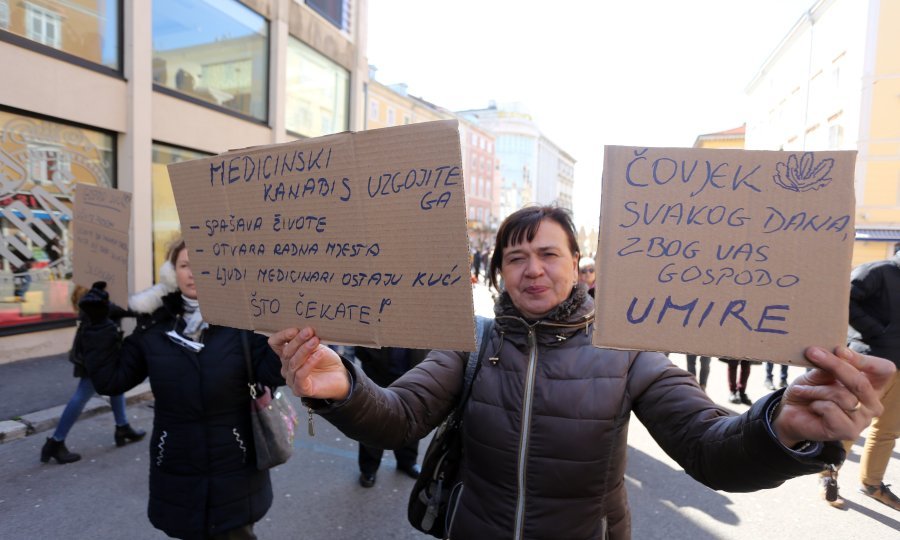 MEDICINSKI
KANABIS UZGOJITE
GA
- SPAŠAVA ŽIVOTE
- OTVARA RADNA MJESTA
- LJUDI MEDICINARI OSTAJU KUĆI
ŠTO ČEKATE!
ČOVJEK
SVAKOG DANA,
ZBOG VAS
GOSPODO
UMIRE